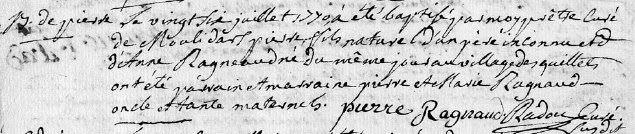 B. de pierre Le vingt six juillet 1770 a été baptisé par moy prêtre Curé
de Moulidars pierre fils naturel d'un père inconnu et
d'Anne Ragneaud né du même jour au village des quillets
ont été parrain et marraine pierre et Marie Ragnaud
oncle et tante maternels. pierre Ragnaud Radou Curé